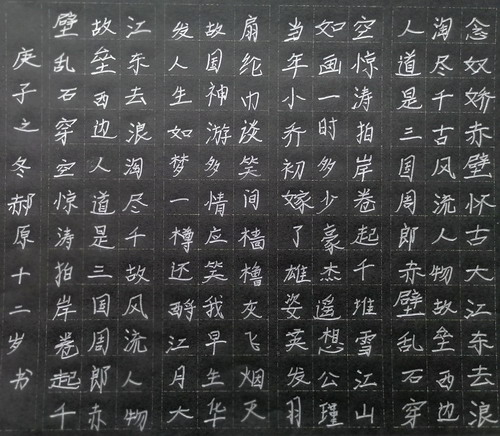 念奴娇赤壁怀古大江东去浪
淘尽千古风流人物故垒西边
人道是三国周郎赤壁乱石穿
空惊涛拍岸卷起千堆雪江山
如画一时多少豪杰遥想公瑾
当年小乔初嫁了雄姿英发羽
扇纶巾谈笑间樯橹灰飞烟灭
故国神游多情应笑我早生华
发人生如梦一樽还酹江月大
江东去浪淘尽千故风流人物
故垒西边人道是三国周郎赤
壁乱石穿空惊涛拍岸卷起千
庚子之冬郝原十二岁书